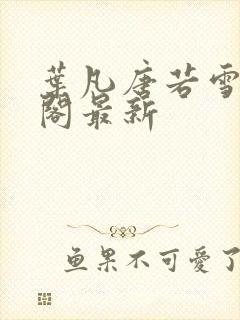 葉凡唐若雪
閣最新
鱼果不可愛了